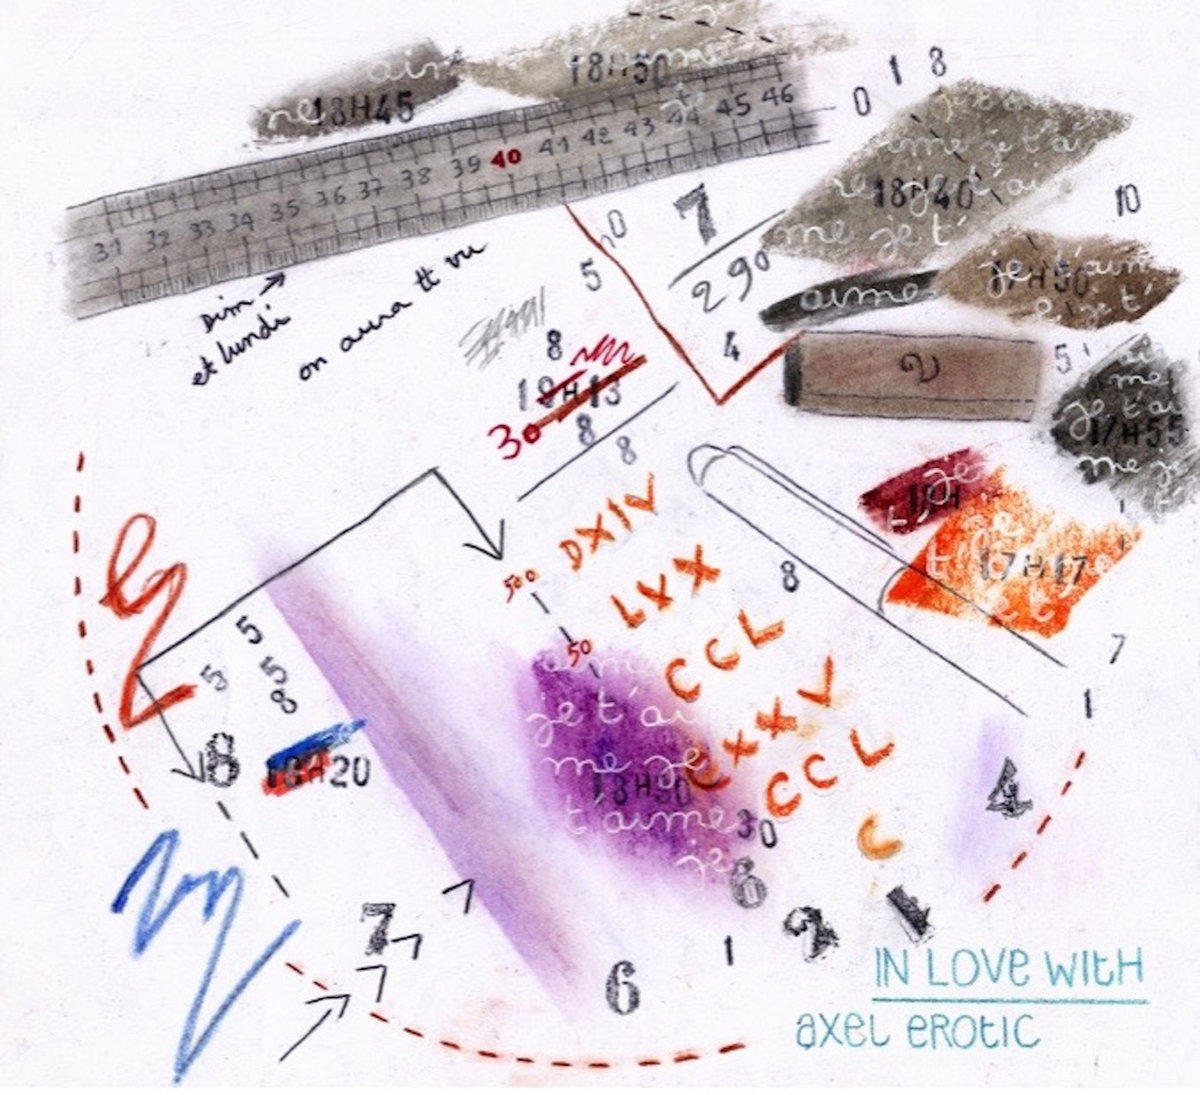 18H45
18H50
31 32 33 34 35 36 37 38 39 40 41 42 43 44 45 46
0 1 8
je t'ai
aime je t'ai
18H40
me je t'
10
7
290
0
5
4
Dim →
et lundi
on aura tt vu
je t'aim
17H50
e je t'
aime
2
5
ai
me
je t'ai
17H55
me je
t
8
18H13
30
8
8
je
t'
17H17
DXIV
500
LXX
50
CCL
CXXV
CCL
C
8
7
1
4
je t'ai
me je
18H30
t'aime
je
30
6
5
5
5
8
8
18H20
7
6
1
2
1
IN LOVE WITH
AXEL EROTIC